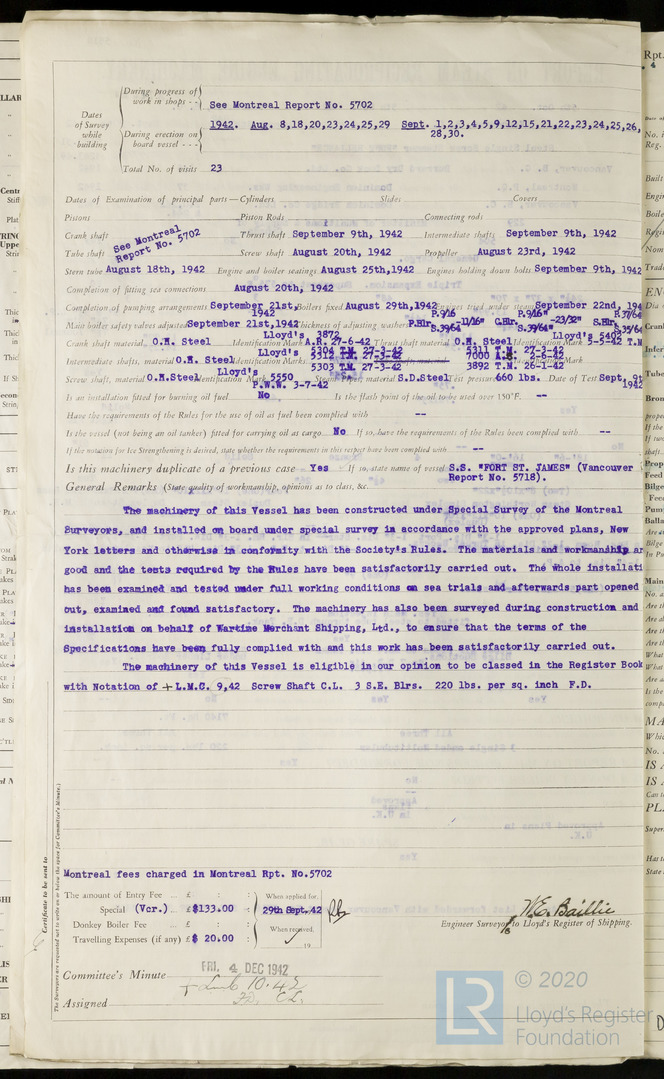 During progress of work in shops - - See Montreal Report No. 5702
Dates of Survey while building
During erection on board vessel - - - 1942. Aug. 8,18,20,23,24,25,29 Sept. 1,2,3,4,5,9,12,15,21,22,23,24,25,26, 28,30.
Total No. of visits 23
Dates of Examination of principal parts—Cylinders Slides Covers
Pistons Piston Rods Connecting rods
Crank shaft See Montreal Report No. 5702 Thrust shaft September 9th, 1942 Intermediate shafts September 9th, 1942
Tube shaft Screw shaft August 20th, 1942 Propeller August 23rd, 1942
Stern tube August 18th, 1942 Engine and boiler seatings August 25th,1942 Engines holding down bolts September 9th, 1942
Completion of fitting sea connections August 20th, 1942
Completion of pumping arrangements September 21st, 1942 Boilers fixed August 29th,1942 Engines tried under steam September 22nd, 194
Main boiler safety valves adjusted September 21st,1942 Thickness of adjusting washers P.Hlr P.9/16 S.39/64 -11/16" C.Hlr. P.9/16" S.39/64" -23/32" S.Hlr P.37/64 S.35/64
Crank shaft material O.H. Steel Identification Mark Lloyd's 3872 A.R. 27-6-42 Thrust shaft material O.H. Steel Identification Mark Lloyd's 5402 3-5-42 T.M
Intermediate shafts, material O.H. Steel Identification Marks Lloyd's 5304 T.M. 27-3-42 5312 T.M. 27-3-42 5303 T.M. 27-3-42 5311 T.M. 27-3-42 7000 2-6-42 3892 T.M. 26-1-42 Mark
Screw shaft, material O.H.Steel Identification Mark Lloyd's 5550 P.W.W. 3-7-42 material S.D.Steel Test pressure 660 lbs. Date of Test Sept. 9t 1942
Is an installation fitted for burning oil fuel No Is the flash point of the oil to be used over 150°F. --
Have the requirements of the Rules for the use of oil as fuel been complied with --
Is the vessel (not being an oil tanker) fitted for carrying oil as cargo No If so, have the requirements of the Rules been complied with --
If the notation for Ice Strengthening is desired, state whether the requirements in this respect have been complied with --
Is this machinery duplicate of a previous case Yes If so, state name of vessel S.S. "FORT ST. JAMES" (Vancouver Report No. 5718).
General Remarks (State quality of workmanship, opinions as to class, &c.
The machinery of this Vessel has been constructed under Special Survey of the Montreal
Surveyors, and installed on board under special survey in accordance with the approved plans, New
York letters and otherwise in conformity with the Society's Rules. The materials and workmanship ar
good and the tests required by the Rules have been satisfactorily carried out. The whole installati
has been examined and tested under full working conditions on sea trials and afterwards part opened
out, examined and found satisfactory. The machinery has also been surveyed during construction and
installation on behalf of Wartime Merchant Shipping, Ltd., to ensure that the terms of the
Specifications have been fully complied with and this work has been satisfactorily carried out.
The machinery of this Vessel is eligible in our opinion to be classed in the Register Book
with Notation of + L.M.C. 9,42 Screw Shaft C.L. 3 S.E. Blrs. 220 lbs. per sq. inch F.D.
Certificate to be sent to
The Surveyors are requested not to write on or below the space for Committee's Minute.)
Montreal fees charged in Montreal Rpt. No.5702
The amount of Entry Fee ... £ : : When applied for,
Special (Vcr.) £ $133.00 : 29th Sept. 42
Donkey Boiler Fee ... £ : : When received,
Travelling Expenses (if any) £ $ 20.00 : 19
W.E. Baillie
Engineer Surveyor to Lloyd's Register of Shipping.
Committee's Minute FRI. 4 DEC 1942
Assigned + Lmb 10.42
C.L.
LR © 2020
Lloyd's Register
Foundation